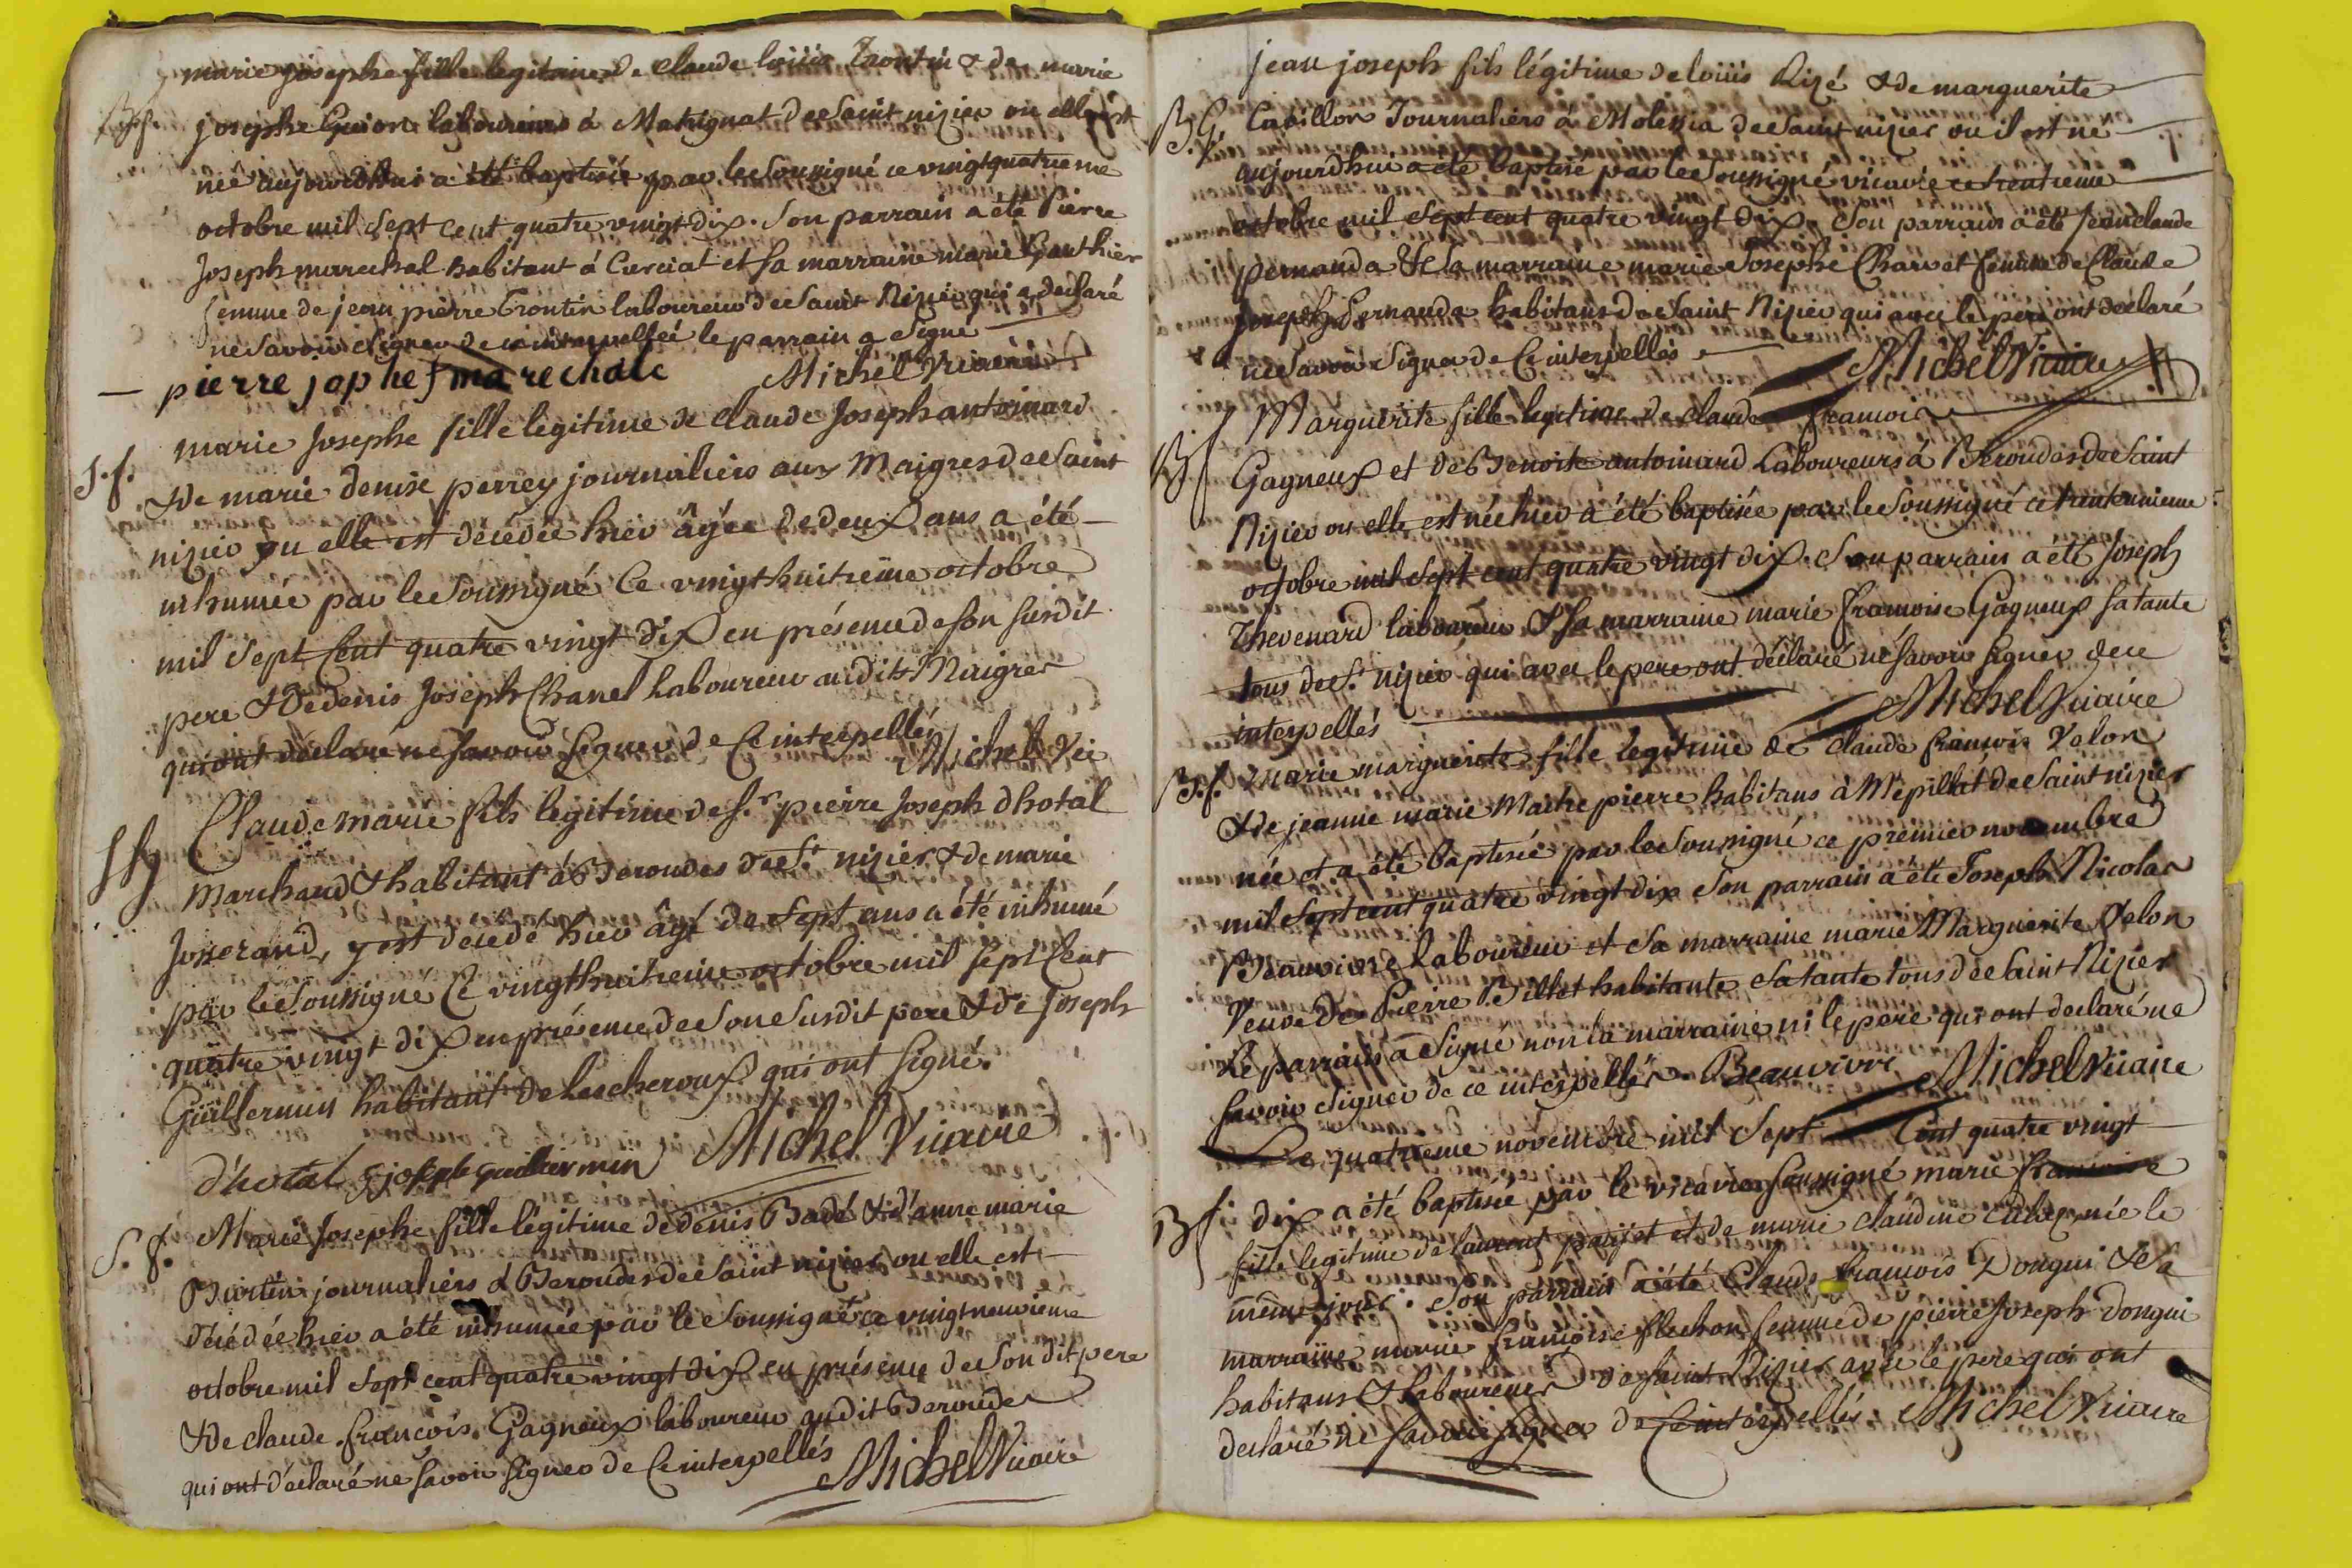 marie josephe fille legitime de claude loüis Trontin & de marie
B.f. josephe Guion laboureurs à Matrignat de Saint nizier ou elle est
née aujourd'hui a été baptisée par le Soussigné ce vingtquatrieme
octobre mil sept cent quatre vingt dix. Son parrain a été Pierre
Joseph marechal habitant à Curciat et sa marraine marie Gauthier
femme de jean pierre Trontin laboureur de Saint Nizier qui a declaré
ne Savoir Signer de ce interpellée le parrain a Signé
pierre jophe marechale Michel Vicaire
marie Josephe fille legitime de claude Joseph antoinard
S.f. & de marie denise perrey journaliers aux Maigres de Saint
nizier ou elle est décédée hier âgée de deux ans a été
inhumée par le Soussigné Ce vingthuitieme octobre
mil Sept Cent quatre vingt dix en présence de son susdit
pere & de denis Joseph Chanel laboureur audits Maigres
qui ont déclaré ne Savoir Signer de Ce interpellés Michel Vic
Claude marie fils legitime de s.r pierre Joseph dhotal
Marchand & habitant à Beroudes de St nizier & de marie
Josserand, y est décedé hier âgé de Sept ans a été inhumé
par le Soussigné Ce vingthuitieme octobre mil Sept Cent
quatre vingt dix en présence de Son Susdit pere & de Joseph
Guillermin habitant de Lescheroux qui ont Signé.
d'hotal joseph guillermin Michel Vicaire
S.f. Marie Josephe fille légitime de denis Badé & d'anne marie
Burtin journaliers à Beroudes de Saint nizier ou elle est
décédée hier a été inhumée par le Soussigné ce vingtneuvieme
octobre mil Sept cent quatre vingt dix en présence de Son dit pere
& de claude françois Gagneux laboureur audit Beroudes
qui ont déclaré ne Savoir Signer de Ce interpellés Michel Vicaire
jean joseph fils légitime de loüis Rizé & de marguerite
B.G. Cavillon Journaliers à Molessia de Saint nizier ou il est né
aujourd'hui a été baptisé par le Soussigné vicaire ce trentieme
octobre mil Sept cent quatre vingt dix. Son parrain a été Jean claude
pernanda & Sa marraine marie Josephe Charvet femme de Claude
Joseph Pernanda habitans de Saint Nizier qui avec le pere ont déclaré
ne Savoir Signer de Ce interpellés Michel Vicaire
Marguerite fille legitime de claude françois
Bf Gagneux et de Benoite antoinard Laboureurs à Beroudes de Saint
Nizier ou elle est née hier a été baptisée par le Soussigné ce trenteunieme
octobre mil Sept cent quatre vingt dix. Son parrain a été Joseph
Thevenard laboureur & Sa marraine marie françoise Gagneux sa tante
tous de St nizier qui avec le pere ont déclaré ne Savoir Signer de ce
interpellés Michel Vicaire
B.f. Marie marguerite fille legitime de Claude françois Velon
& de jeanne marie Maitre pierre habitans à Mépillat de Saint nizier
née et a été baptisée par le Soussigné ce premier novembre
mil Sept cent quatre vingt dix Son parrain a été Joseph Nicolas
Beauvivre Laboureur et Sa marraine marie Marguerite Velon
Veuve de Pierre Billet habitante Sa tante tous de Saint Nizier
Le parrain a Signé non la marraine ni le pere qui ont declaré ne
Savoir Signer de ce interpellés. Beauvivre Michel Vicaire
Le quatrieme novembre mil Sept Cent quatre vingt
Bf dix a été baptisée par le vicaire Soussigné marie françoise
fille legitime de laurent et de marie claudine née le
même jour. Son parrain a été Claude françois Dongui & Sa
marraine marie françoise flechon femme de pierre Joseph Dongui
habitans & laboureurs de Saint Nizier avec le pere qui ont
declaré ne Savoir Signer de Ce interpellés. Michel Vicaire